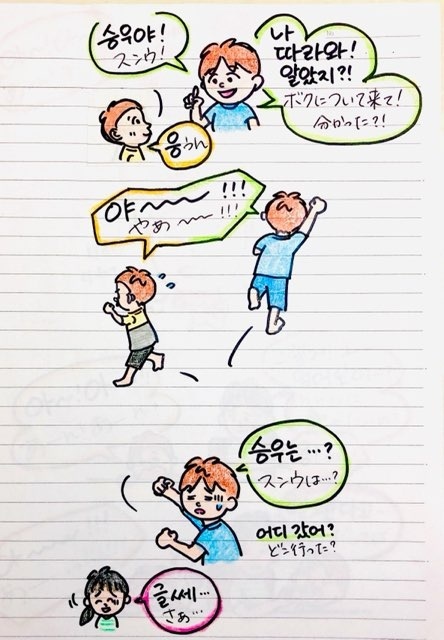 승우야!
スンウ!
나
따라와!
알았지?!
ボクについて来て!
分かった?!
응 うん
야~~ !!!
やあ ~~ !!!
승우는…?
スンウは…?
어디 갔어?
どこ行った?
글쎄…
さあ…